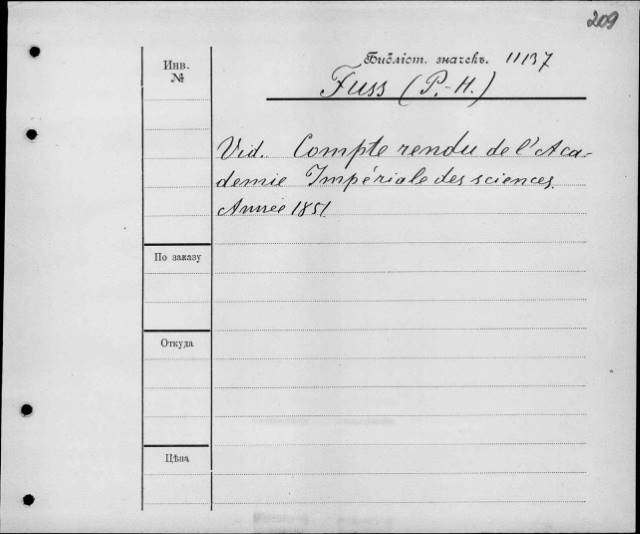 209
Инв.
№
Библіот. значекъ. 11137
Fuss (P.-H.)
Vid. Compte rendu de l'Aca-
demie Impériale des sciences.
Année 1851
По заказу
Откуда
Цѣна